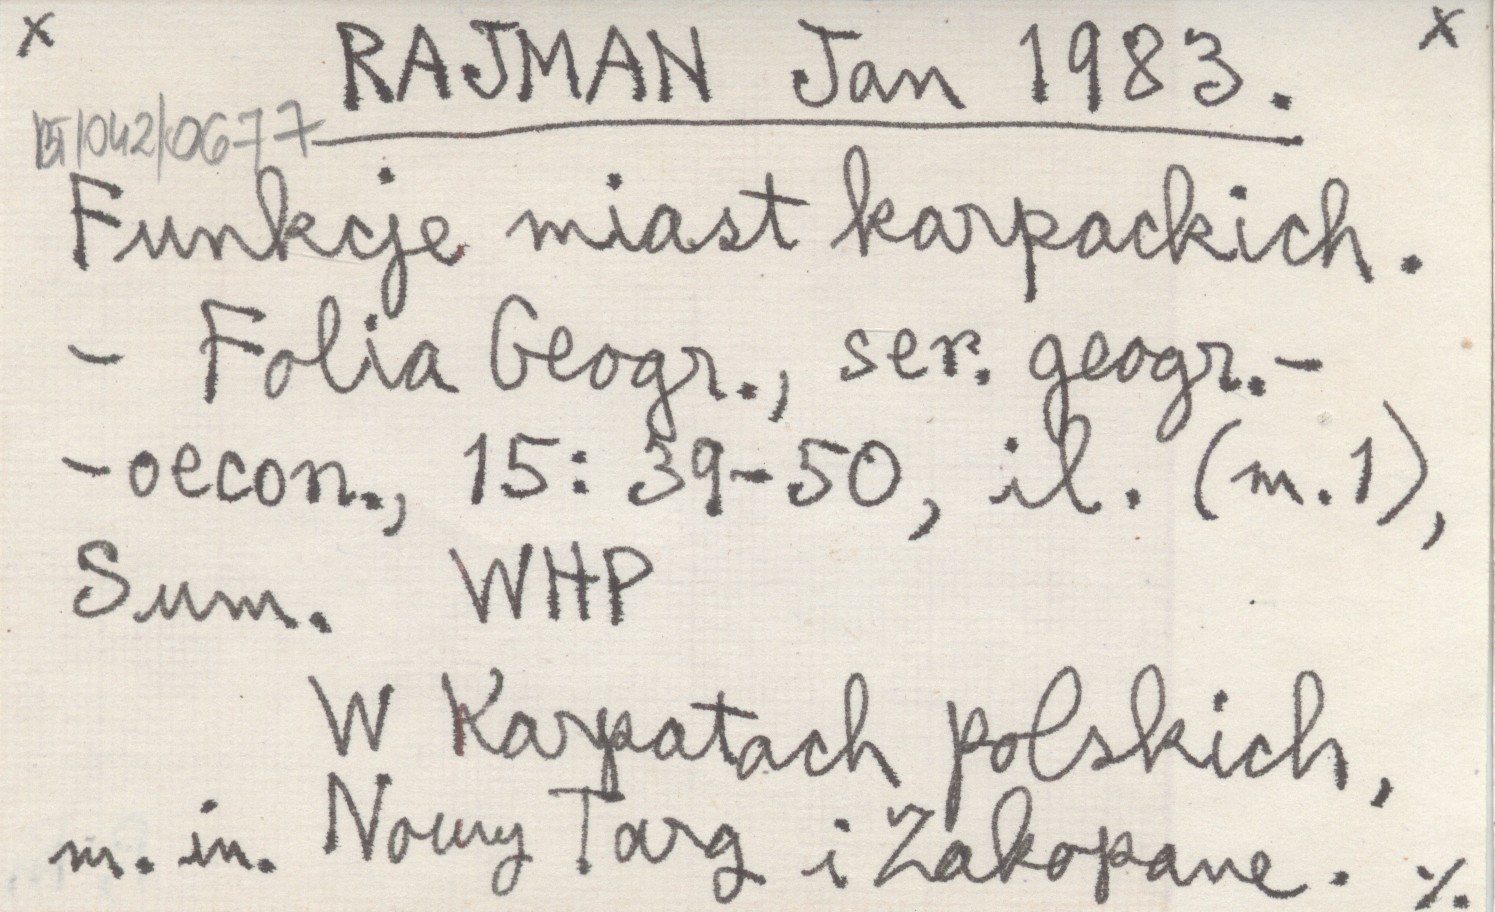 x RAJMAN Jan 1983. x
/042/0677
Funkcje miast karpackich.
- Folia Geogr., ser. geogr.-
-oecon., 15: 39-50, il. (m.1),
Sum. WHP
W Karpatach polskich,
m. in. Nowy Targ i Zakopane. ./.